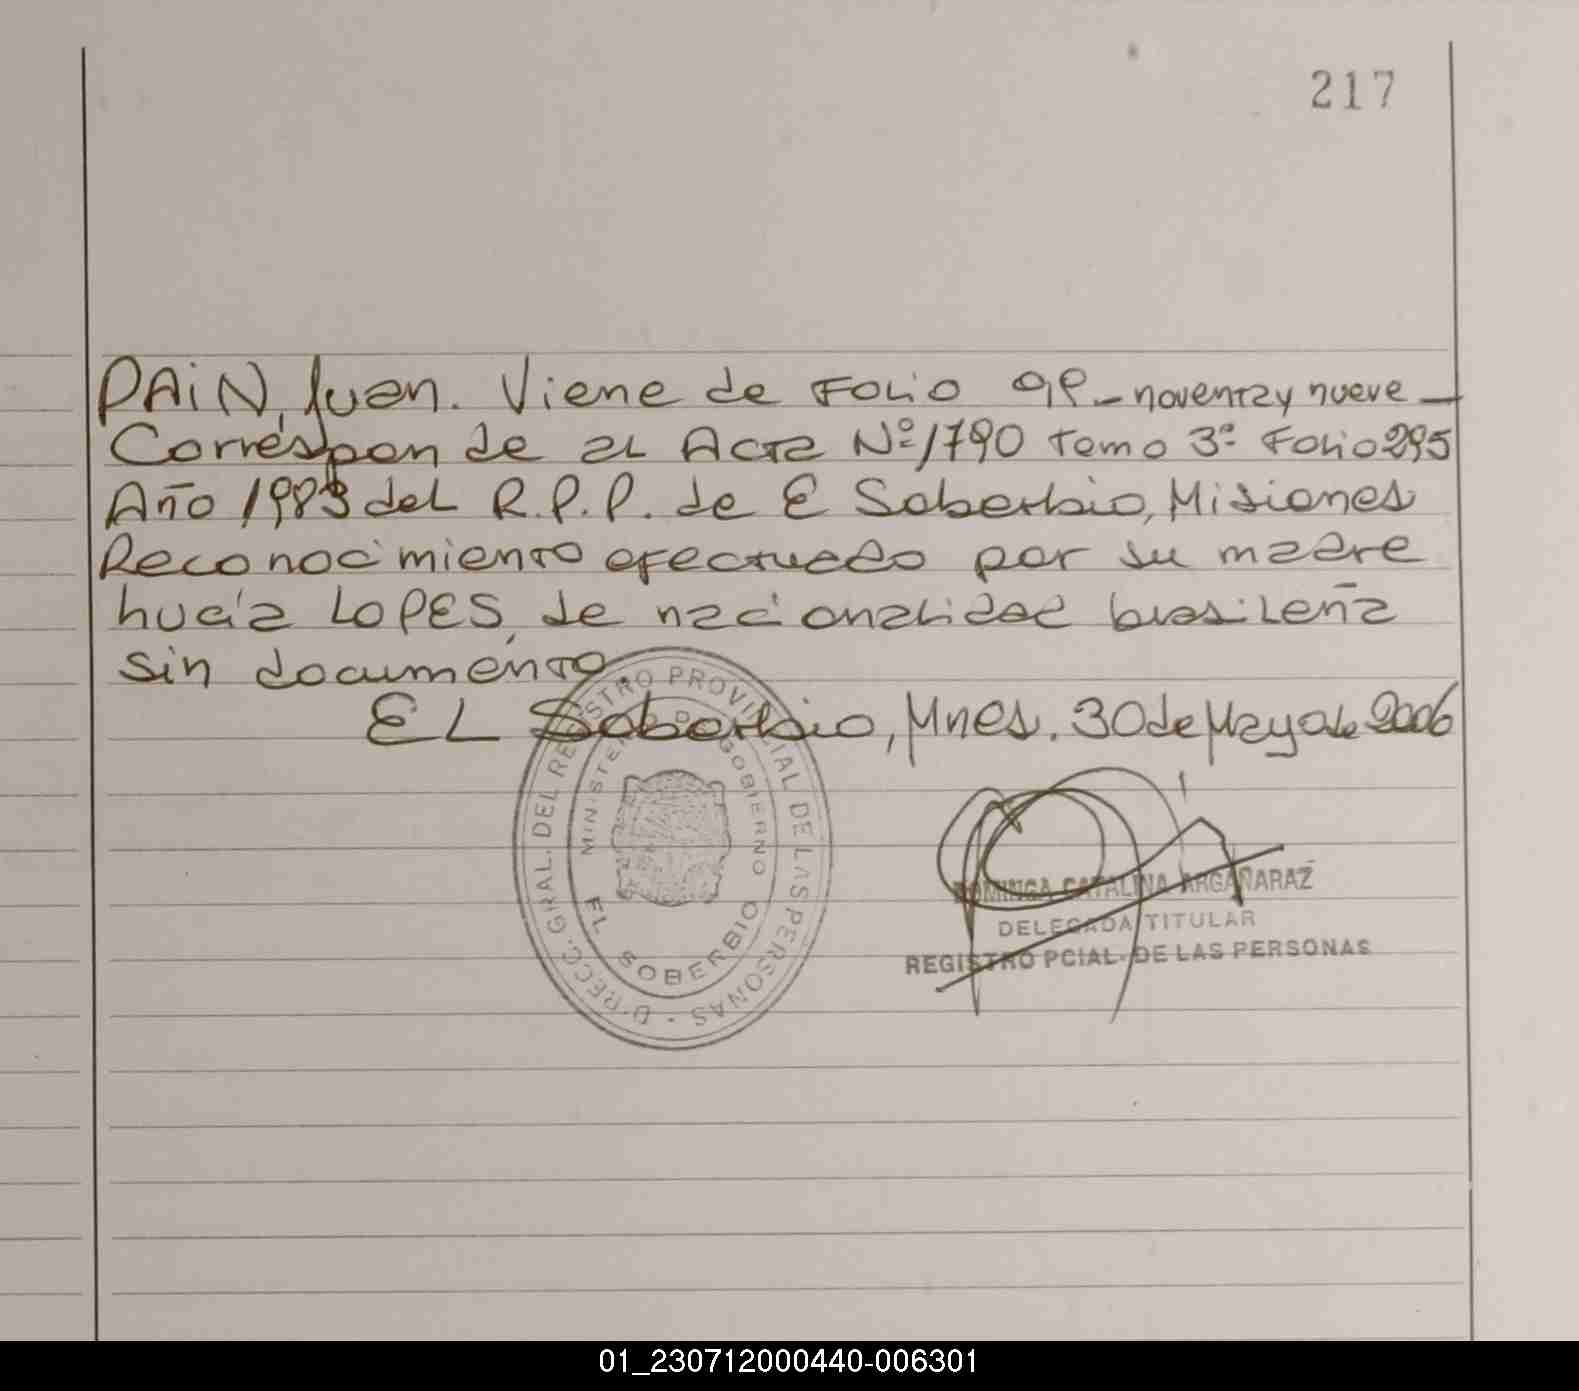 217
PAIN, Juan. Viene de Folio 99 - noventa y nueve -
Corresponde al Acta Nº 1790 Tomo 3º Folio 295
Año 1983 del R.P.P. de E Soberbio, Misiones
Reconocimiento efectuado por su madre
Lucía LOPES, de nacionalidad brasileña
sin documento
EL Soberbio, Mnes. 30 de Mayo de 2006
DIRECC. GRAL. DEL REGISTRO PROVINCIAL DE LAS PERSONAS -
MINISTERIO DE GOBIERNO
EL SOBERBIO
DOMINGA CATALINA ARGAÑARAZ
DELEGADA TITULAR
REGISTRO PCIAL. DE LAS PERSONAS
01_230712000440-006301